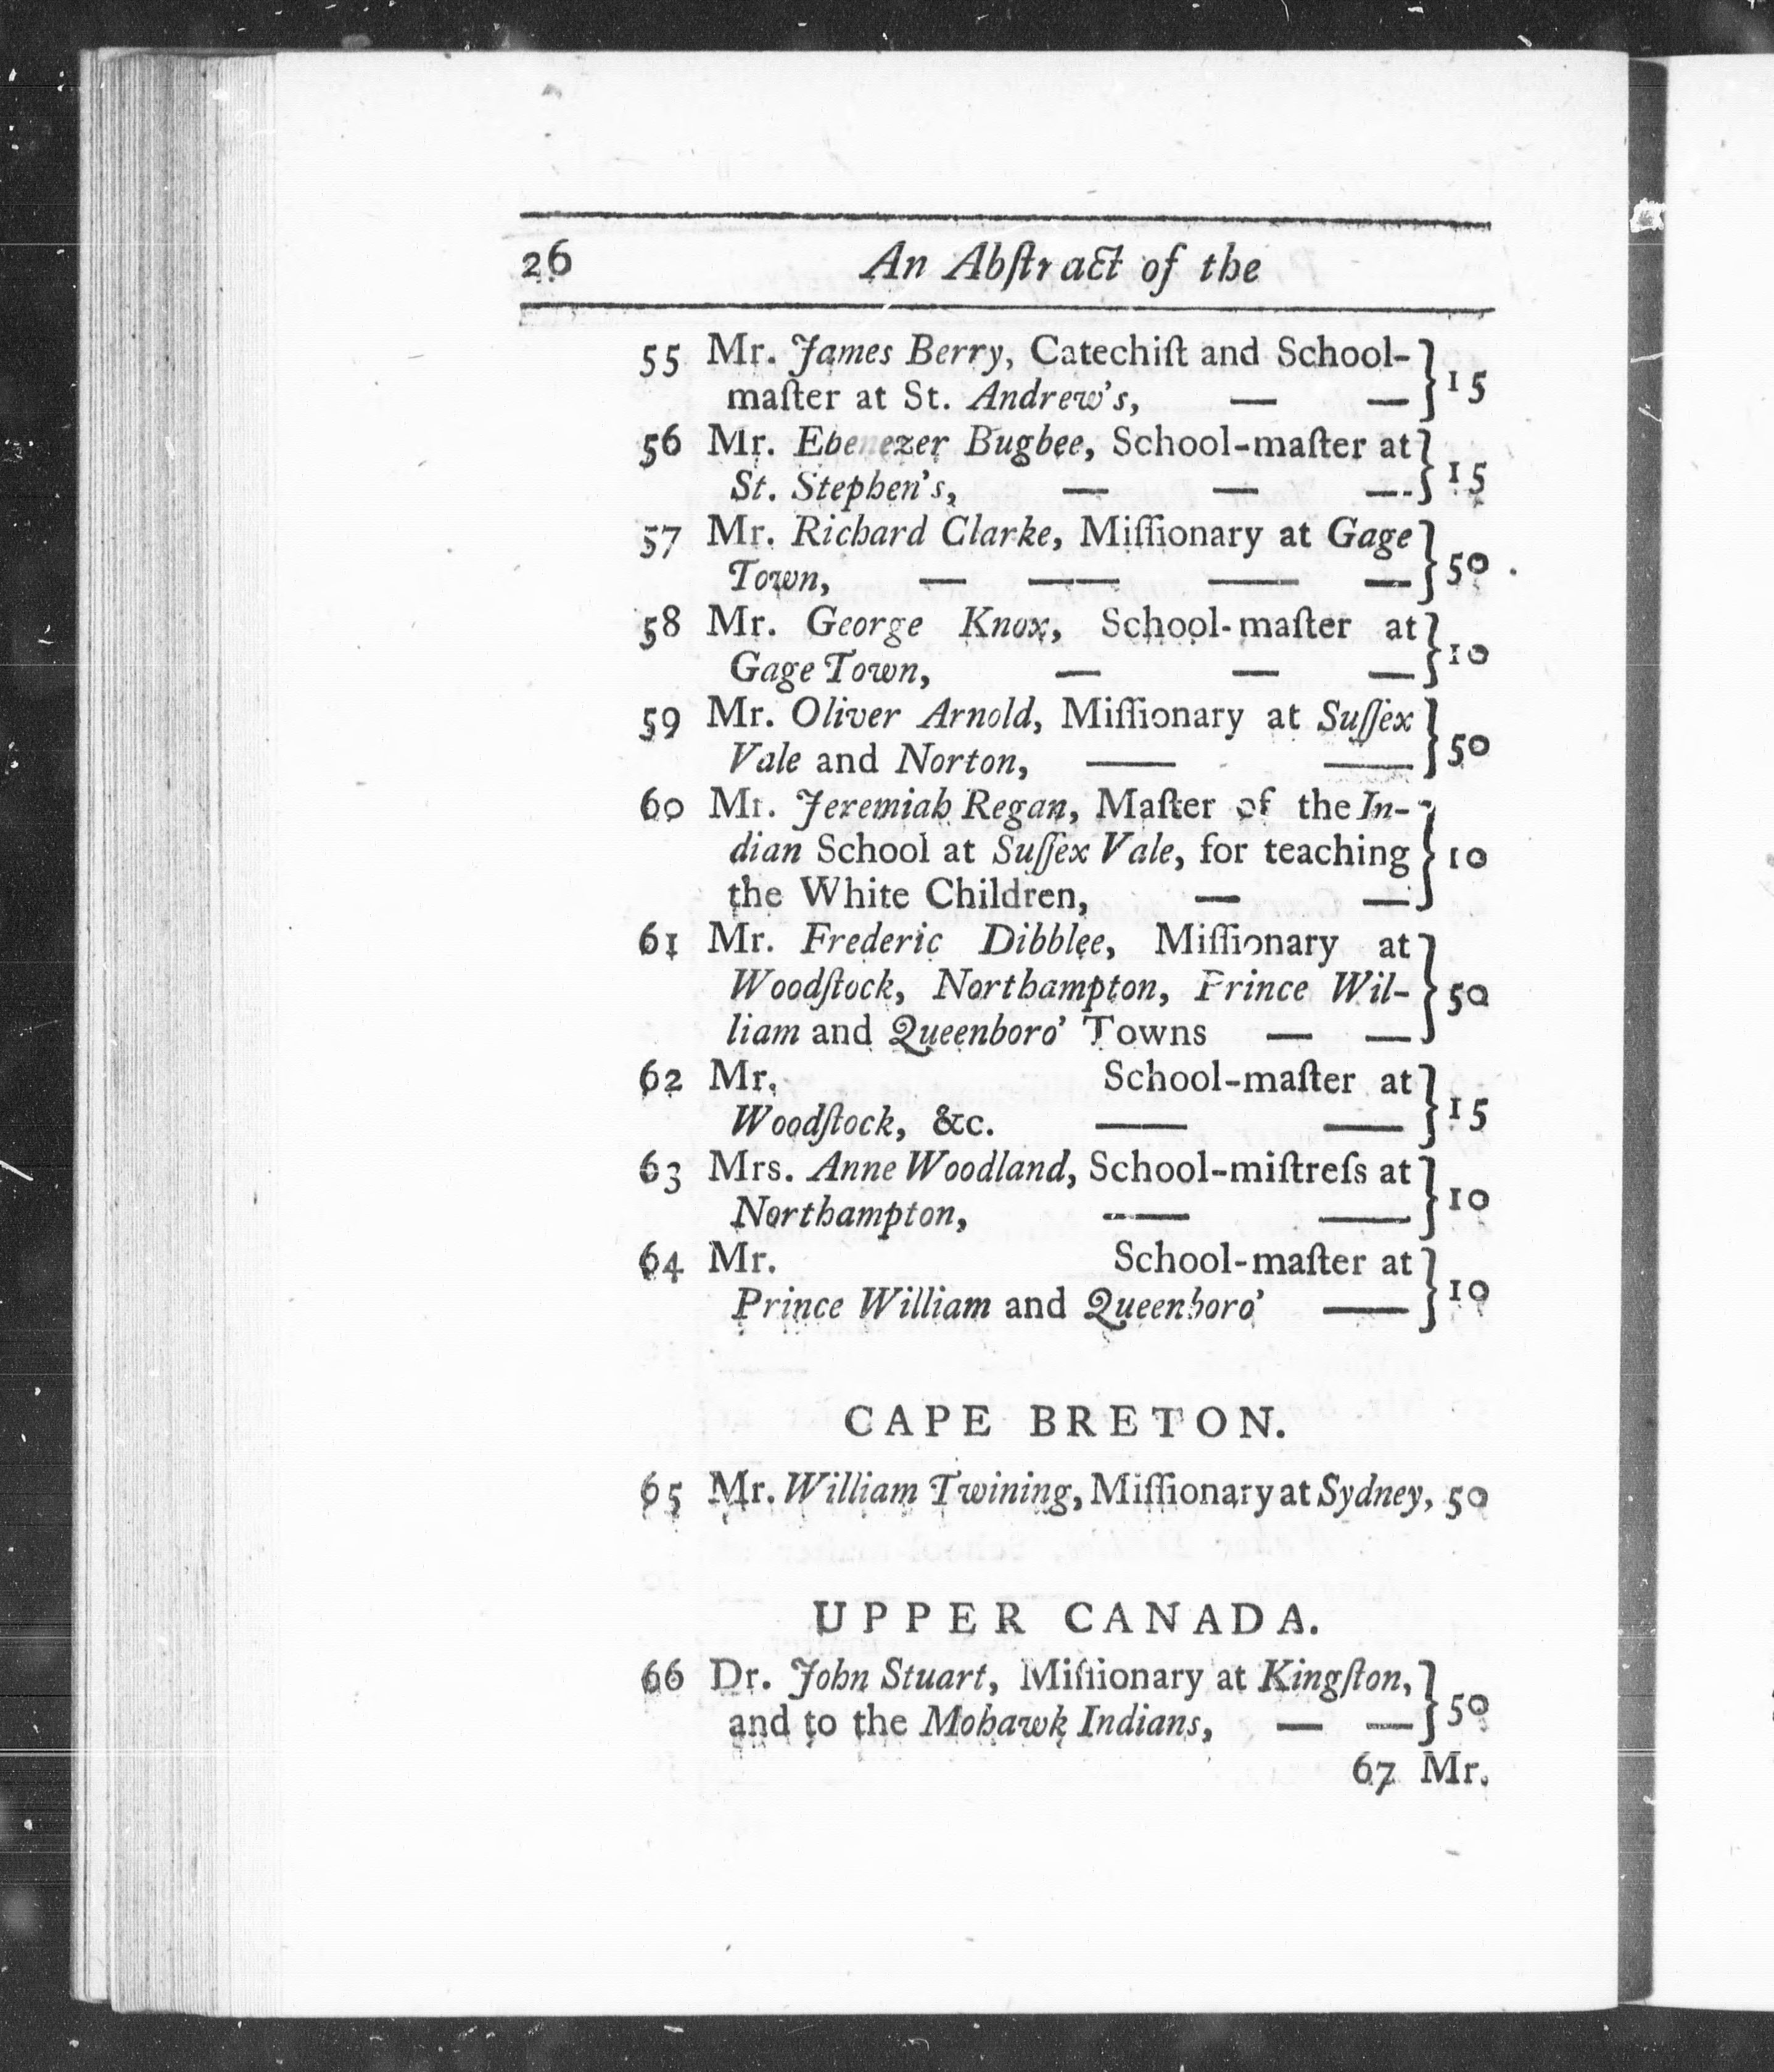 26 An Abſtract of the
55 Mr. James Berry, Catechiſt and School-
maſter at St. Andrew's, — — } 15
56 Mr. Ebenezer Bugbee, School-maſter at
St. Stephen's, — — — } 15
57 Mr. Richard Clarke, Miſſionary at Gage
Town, — — — — } 50
58 Mr. George Knox, School-maſter at
Gage Town, — — — } 10
59 Mr. Oliver Arnold, Miſſionary at Suſſex
Vale and Norton, — — } 50
60 Mr. Jeremiah Regan, Maſter of the In-
dian School at Suſſex Vale, for teaching } 10
the White Children, — —
61 Mr. Frederic Dibblee, Miſſionary at
Woodſtock, Northampton, Prince Wil- } 50
liam and Queenboro' Towns — —
62 Mr. School-maſter at
Woodſtock, &c. — — } 15
63 Mrs. Anne Woodland, School-miſtreſs at
Northampton, — — } 10
64 Mr. School-maſter at
Prince William and Queenboro' — } 10
CAPE BRETON.
65 Mr. William Twining, Miſſionary at Sydney, 50
UPPER CANADA.
66 Dr. John Stuart, Miſſionary at Kingſton,
and to the Mohawk Indians, — — } 50
67 Mr.